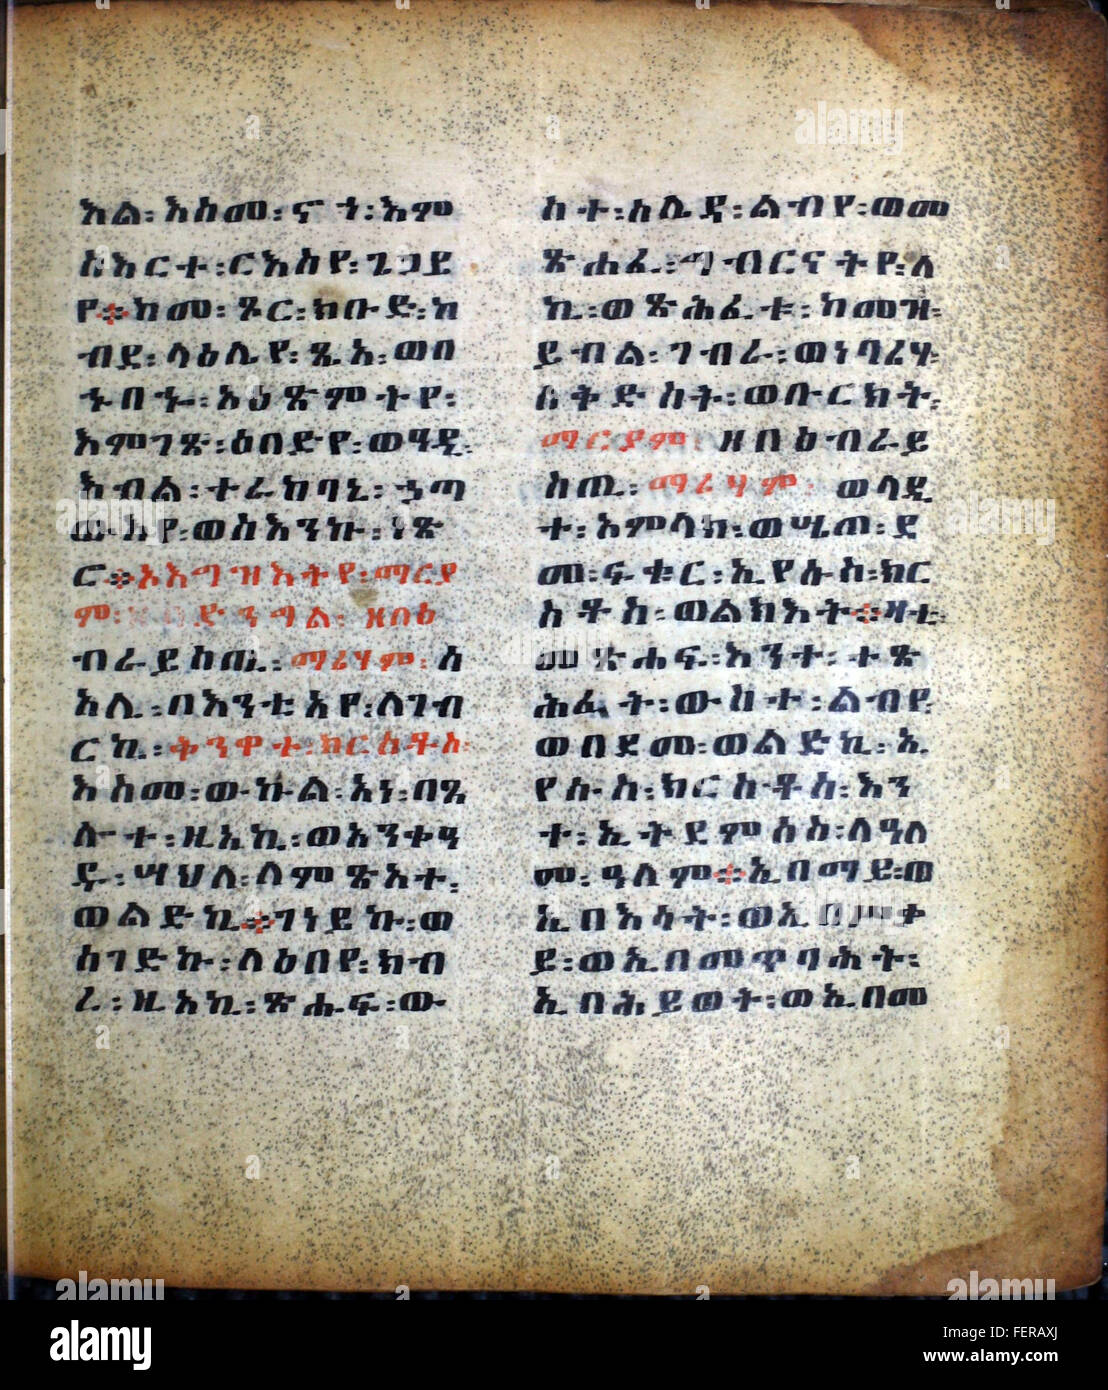 እል፡እስመ፡ናት፡እም
ስእርተ፡ርእስየ፡ጌጋይ
የ፨ከመ፡ጾር፡ክቡድ፡ከ
ብደ፡ላዕሌየ፡ጼአ፡ወበ
ኍበኍ፡አፅጽምትየ፡
እምገጸ፡ዕበድየ፡ወዓዲ፡
እብል፡ተራከባኒ፡ኃጣ
ውእየ፡ወስእንኩ፡ነጽ
ሮ፨ኦእግዝእትየ፡ማርያ
ም፡ድንግል፡ዘበዕ
ብራይስጢ፡ማሪሃም፡ሰ
አሊ፡በእንቲአየ፡ለገብ
ርኪ፡ቅንዋተ፡ክርስቶስ፡
እስመ፡ውኩል፡አነ፡በጼ
ሎተ፡ዚአኪ፡ወአንቀዓ
ዱ፡ሣህለ፡ለምጽአተ፡
ወልድኪ፨ገነይኩ፡ወ
ሰገድኩ፡ለዕበየ፡ክብ
ረ፡ዚአኪ፡ጽሒፍ፡ው
ስተ፡ሰሌዳ፡ልብየ፡ወመ
ጽሐፈ፡ግብርናትየ፡ለ
ኪ፡ወጽሕፈቱ፡ከመዝ፡
ይብል፡ገብራ፡ወነባሪሃ፡
ለቅድስት፡ወቡርክት፡
ማርያም፡ዘበዕብራይ
ስጢ፡ማሪሃም፡ወላዲ
ተ፡አምላክ፡ወሤጠ፡ደ
ሙ፡ፍቁር፡ኢየሱስ፡ክር
ስቶስ፡ወልክእት፨ዛቲ፡
መጽሐፍ፡እንተ፡ተጽ
ሕፈት፡ውስተ፡ልብየ፡
ወበደሙ፡ወልድኪ፡ኢ
የሱስ፡ክርስቶስ፡እን
ተ፡ኢትደምሰስ፡ለዓለ
መ፡ዓለም፨ኢበማይ፡ወ
ኢበእሳት፡ወኢበሦቀ
ይ፡ወኢበመጥባሕት፡
ኢበሕይወት፡ወኢበመ